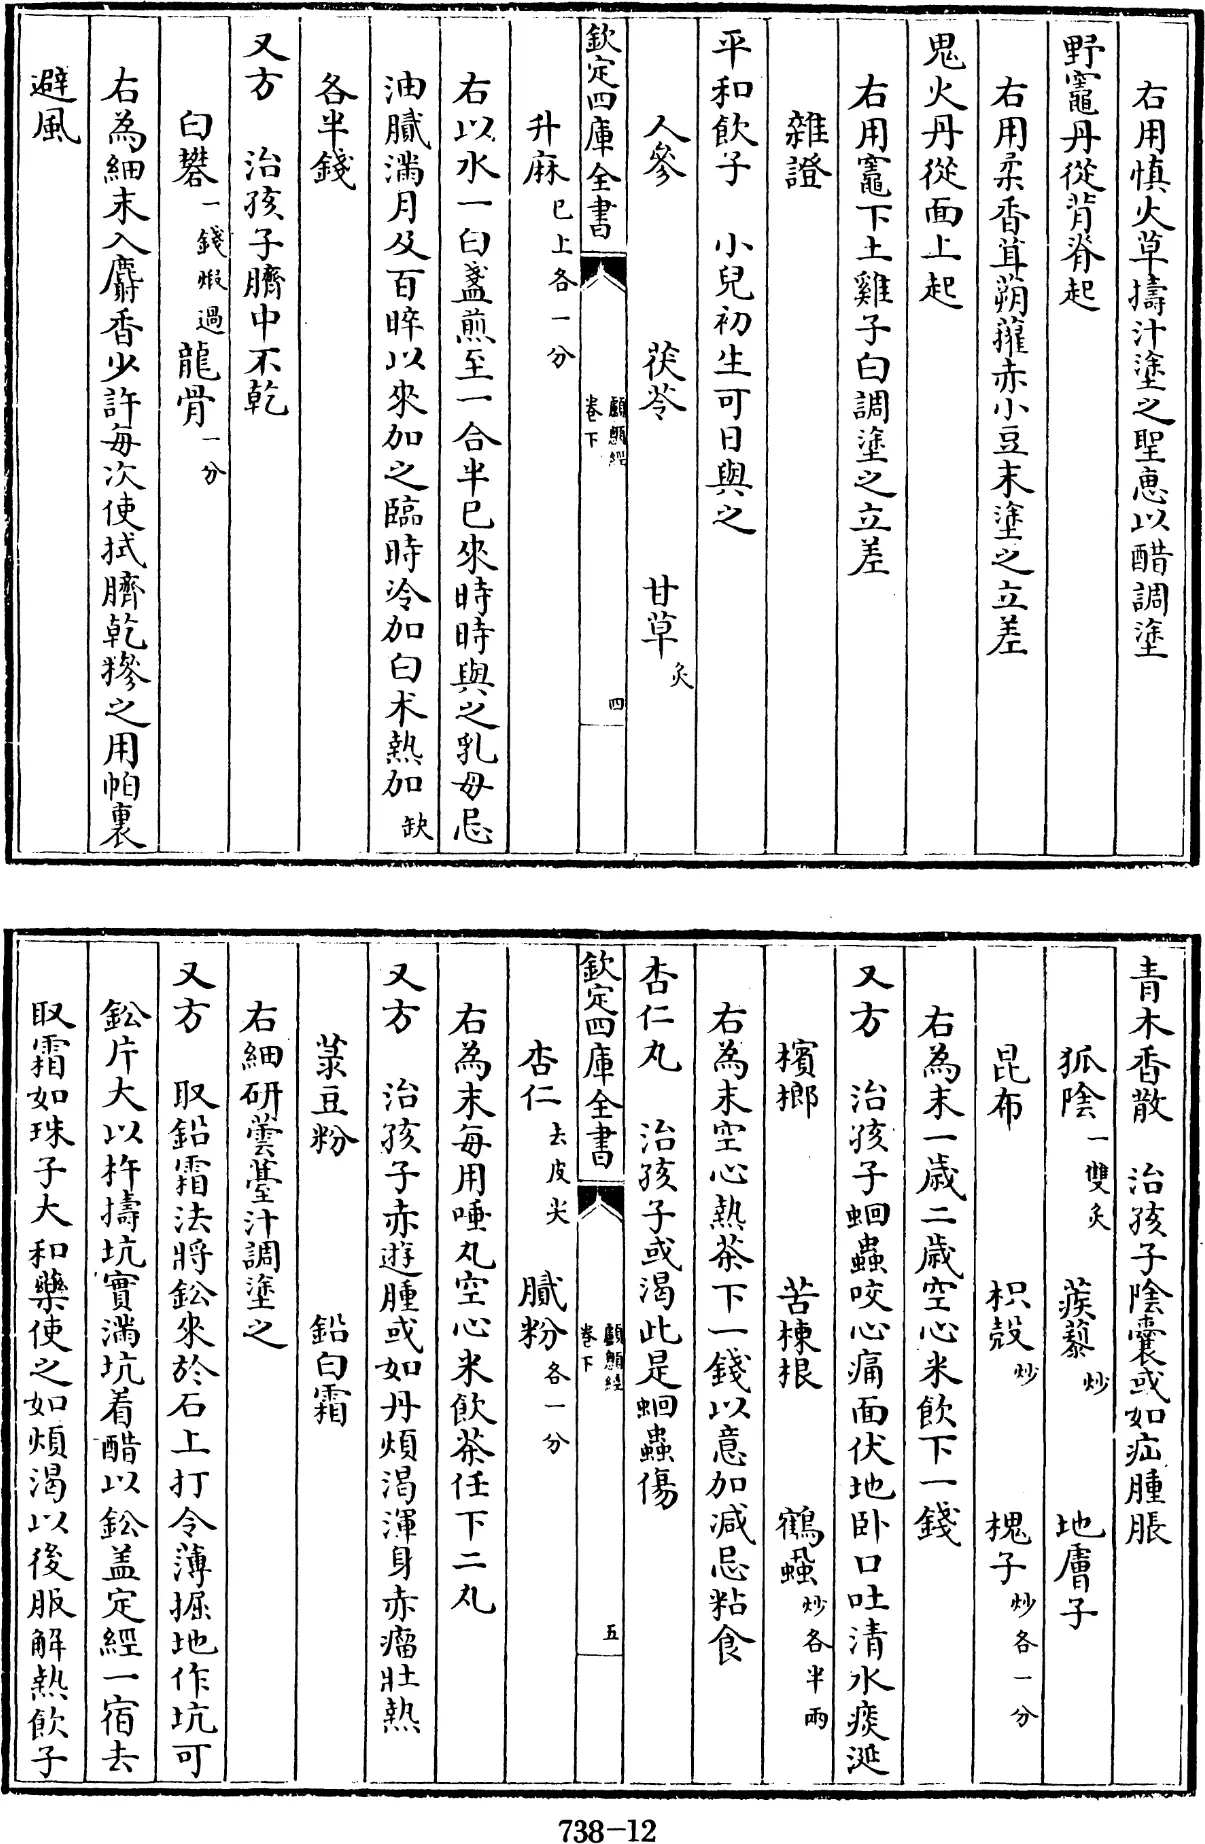 右用慎火草擣汁塗之聖惠以醋調塗
野竈丹從背脊起
右用柔香茸蒴藋赤小豆末塗之立差
鬼火丹從面上起
右用竈下土雞子白調塗之立差
雜證
平和飲子　小兒初生可日與之
人參　茯苓　甘草炙
欽定四庫全書　顱顖經卷下　四
升麻已上各一分
右以水一白盞煎至一合半已來時時與之乳母忌
油膩滿月及百晬以來加之臨時冷加白术熱加缺
各半錢
又方　治孩子臍中不乾
白礬一錢煅過龍骨一分
右為細末入麝香少許每次使拭臍乾摻之用帕裹
避風
青木香散　治孩子陰囊或如疝腫脹
狐陰一雙炙　蒺藜炒　地膚子
昆布　枳殼炒　槐子炒各一分
右為末一歲二歲空心米飲下一錢
又方　治孩子蛔蟲咬心痛面伏地卧口吐清水痰涎
檳榔　苦楝根　鶴蝨炒各半兩
右為末空心熱茶下一錢以意加減忌粘食
杏仁丸　治孩子或渴此是蛔蟲傷
欽定四庫全書　顱顖經卷下　五
杏仁去皮尖　膩粉各一分
右為末每用唾丸空心米飲茶任下二丸
又方　治孩子赤遊腫或如丹煩渴渾身赤瘤壯熱
菉豆粉　鉛白霜
右細研蕓薹汁調塗之
又方　取鉛霜法將鈆來於石上打令薄掘地作坑可
鈆片大以杵擣坑實滿坑着醋以鈆盖定經一宿去
取霜如珠子大和藥使之如煩渴以後服解熱飲子
738-12